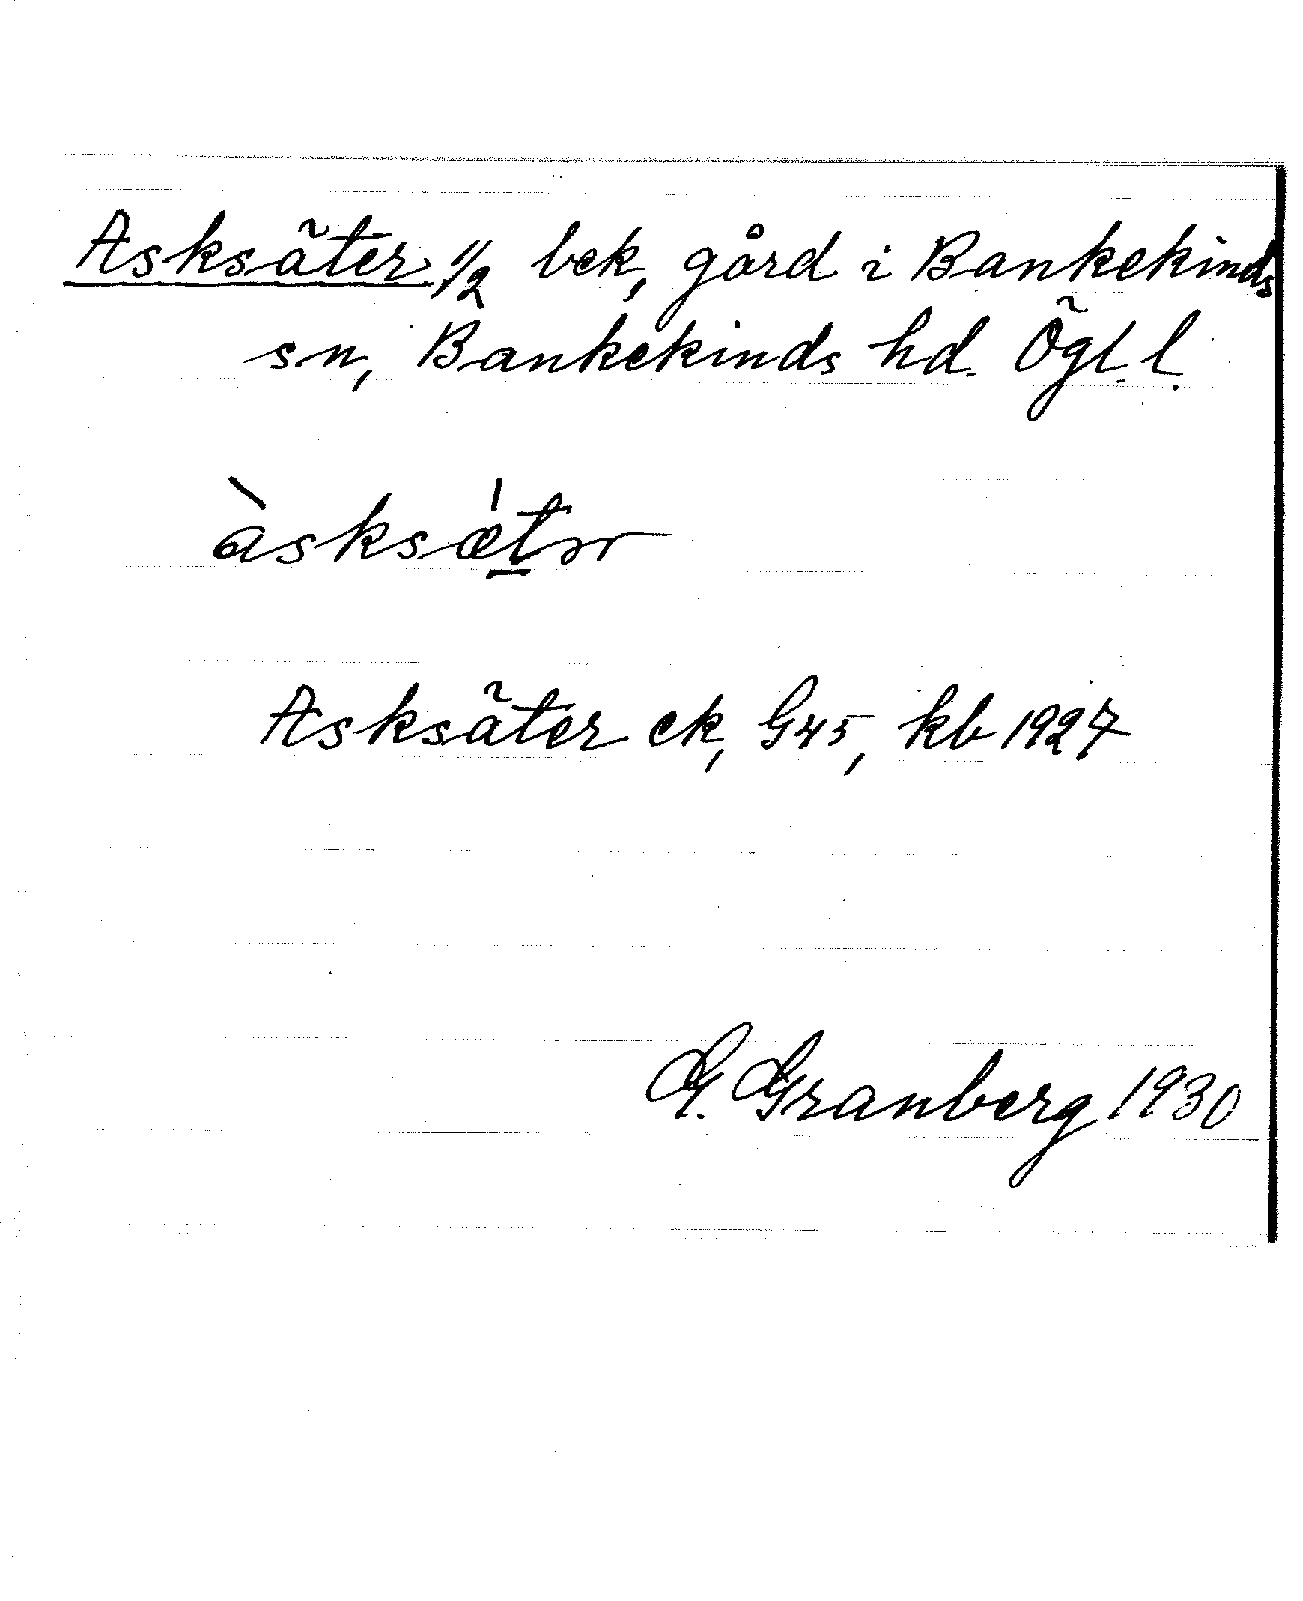 Asksäter 1/2 bek, gård i Bankekinds
sn, Bankekinds hd. Ögl. l.
àsksæ̍t̲ər
Asksäter ek, G45, kb 1927
G. Granberg 1930